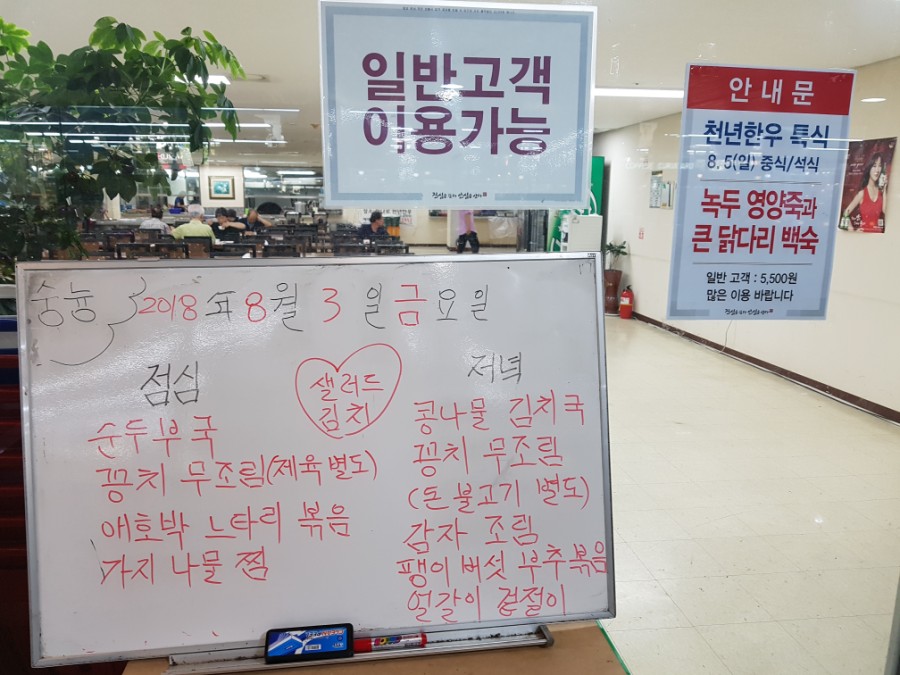 일반고객
이용가능
안내문
천년한우 특식
8. 5(일) 중식/석식
녹두 영양죽과
큰 닭다리 백숙
일반 고객 : 5,500원
많은 이용 바랍니다
숭늉
2018年 8월 3일 금요일
점심
순두부국
꽁치 무조림(제육별도)
애호박 느타리 볶음
가지 나물 찜
샐러드
김치
저녁
콩나물 김치국
꽁치 무조림
(돈불고기 별도)
감자 조림
팽이버섯 부추볶음
얼갈이 겉절이